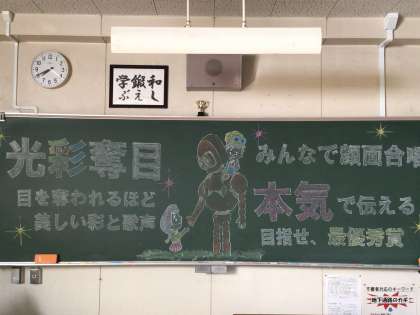 和鍛学
しえぶ
光彩奪目
目を奪われるほど
美しい彩と歌声
みんなで顔面合唱
本気で伝える
目指せ、最優秀賞
地下通路のカギこ